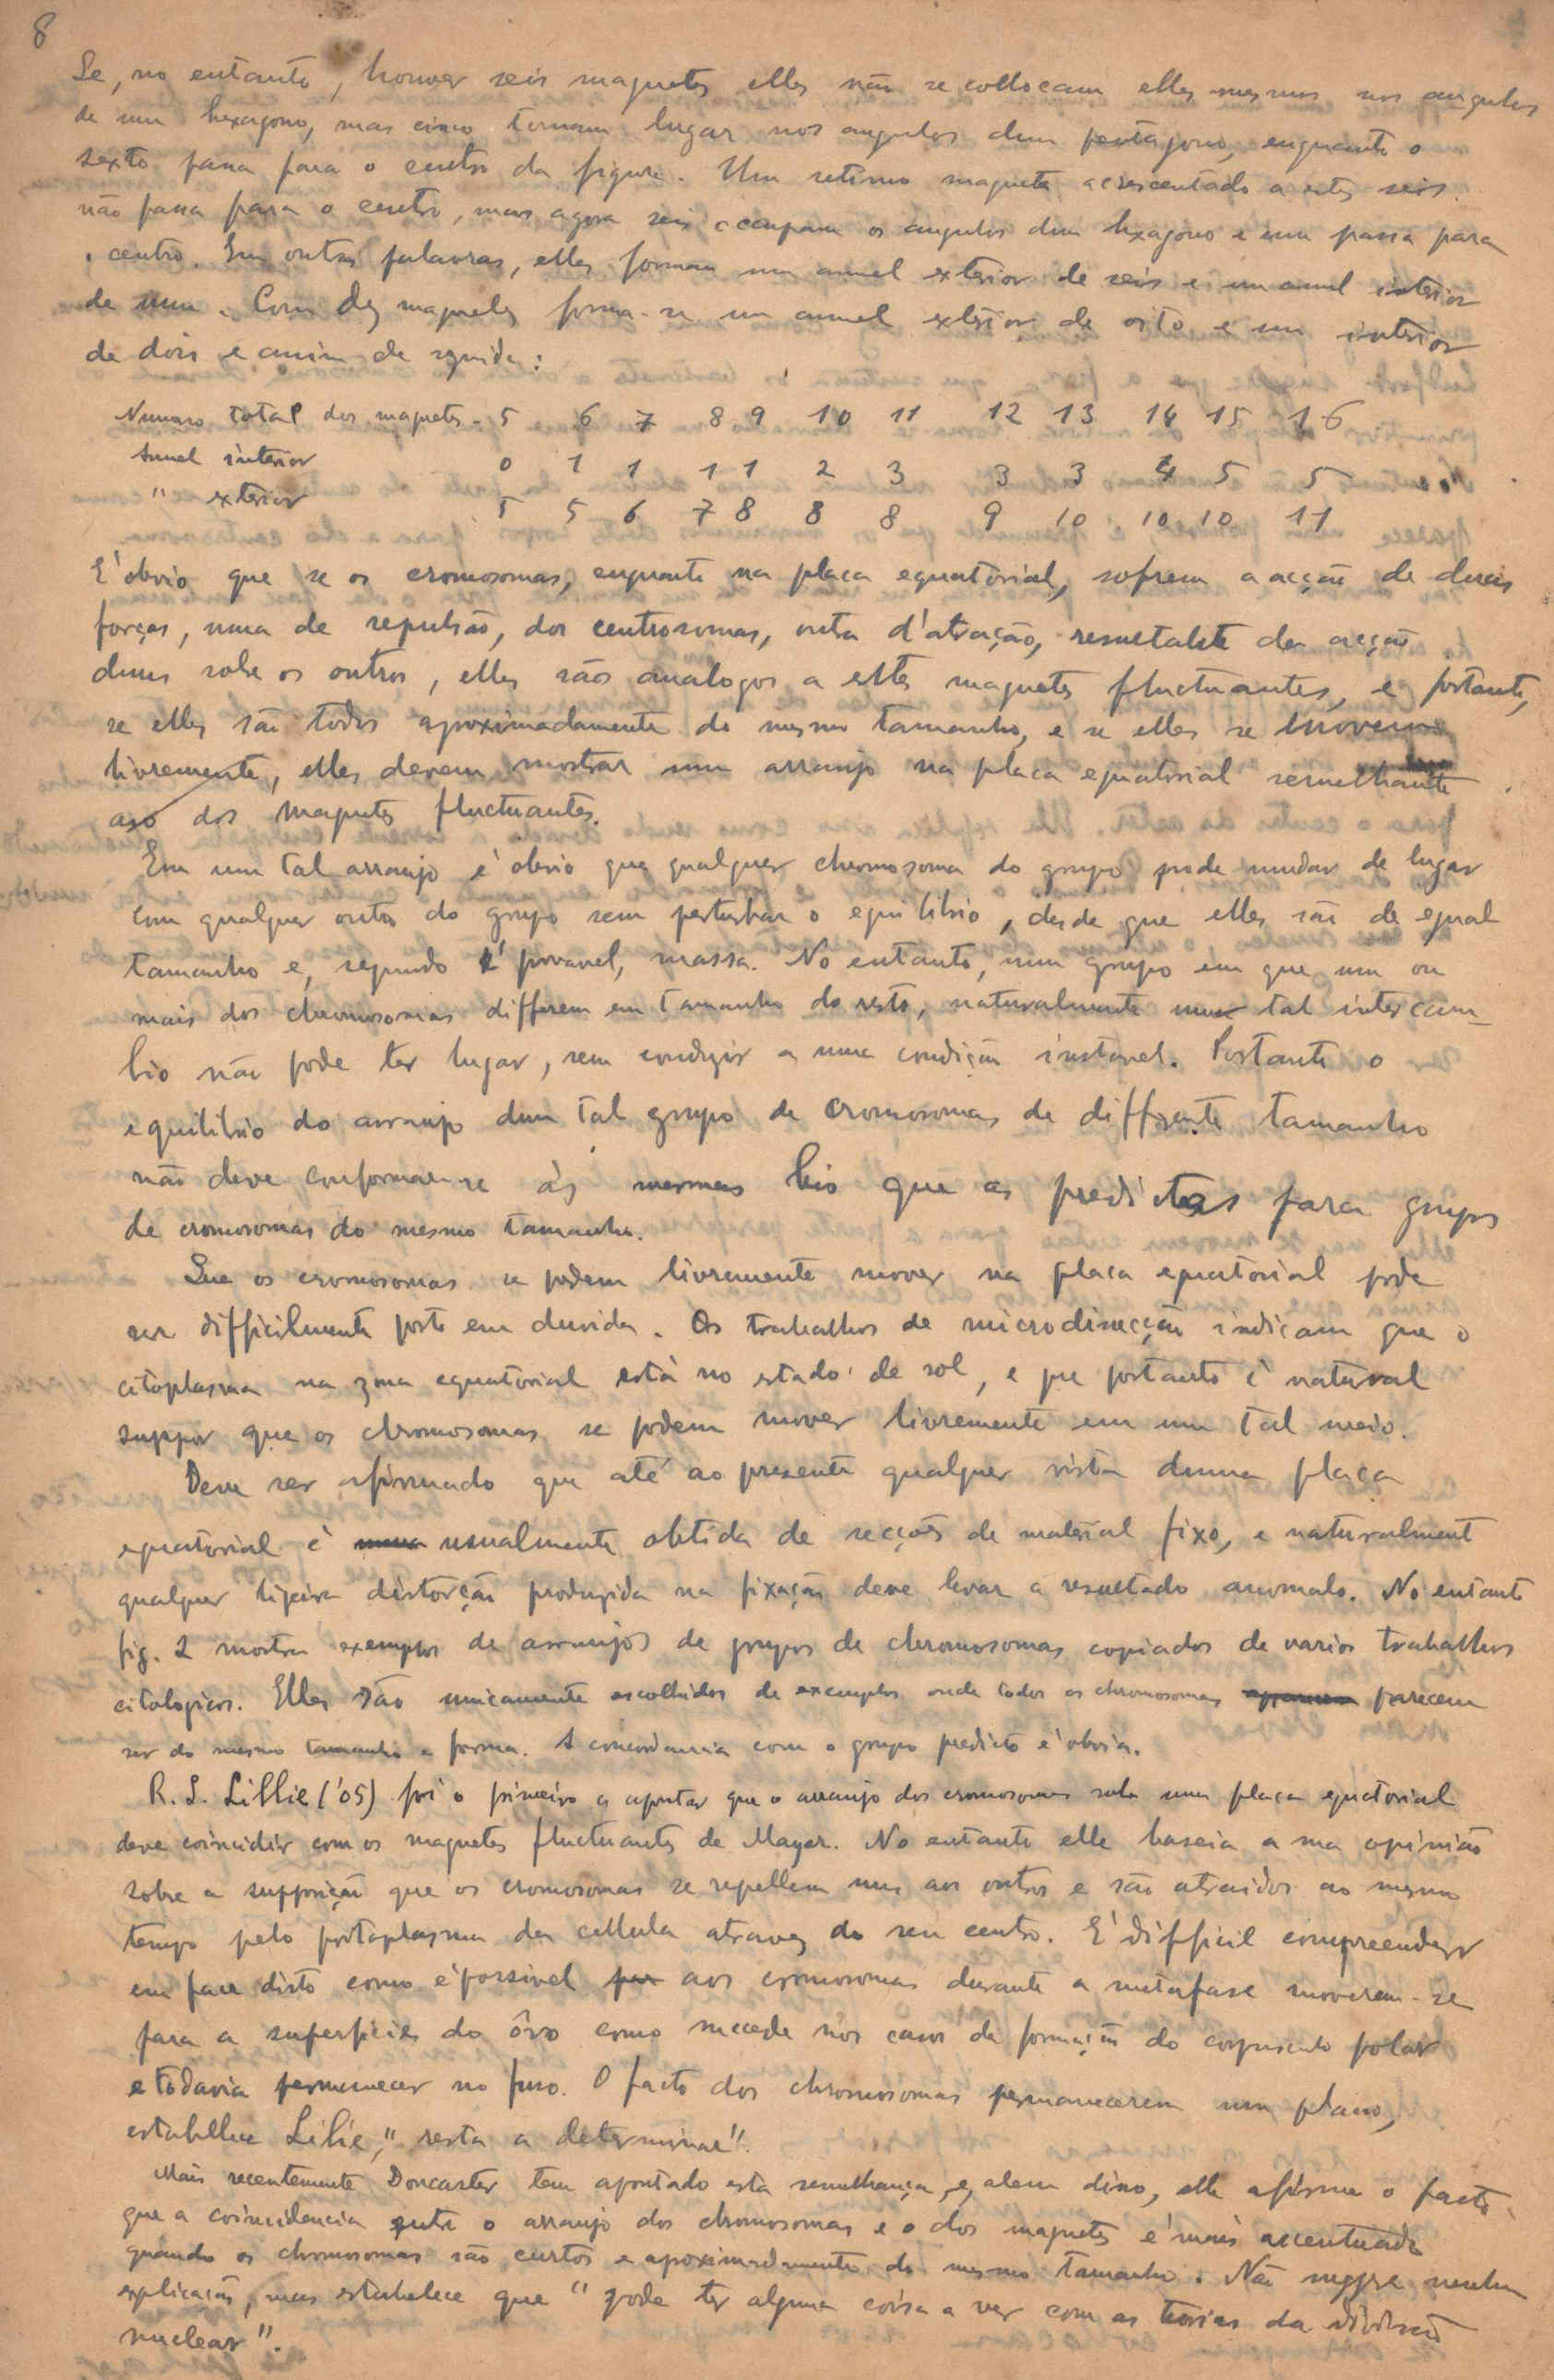 8
Se, no entanto, houver seis magnetes elles não se collocam elles mesmos nos angulos
de um hexagono, mas cinco tomam lugar nos angulos dum pentagono, enquanto o
sexto passa para o centro da figura. Um setimo magnete acrescentado a estes seis
não passa para o centro, mas agora seis occupam os angulos dum hexagono e um passa para
o centro. Em outras palavras, elles formam um annel exterior de seis e um annel interior
de um. Com dez magnetes forma-se um annel exterior de oito e um interior
de dois e assim de seguida:
Numero total dos magnetes - 5 6 7 8 9 10 11 12 13 14 15 16
Annel interior 0 1 1 1 1 2 3 3 3 4 5 5
" exterior 5 5 6 7 8 8 8 9 10 10 10 11
E' obvio que se os cromosomas, enquanto na placa equatorial, sofrem a acção de duas
forças, uma de repulsão, dos centrosomas, outra d'atração, resultante da acção
duns sobre os outros, elles são analogos a estes magnetes fluctuantes, e portanto,
se elles são todos aproximadamente do mesmo tamanho, e se elles se movem
livremente, elles devem mostrar um arranjo na placa equatorial semelhante
ao dos magnetes fluctuantes.
Em um tal arranjo é obvio que qualquer chromosoma do grupo pode mudar de lugar
com qualquer outro do grupo sem perturbar o equilibrio, desde que elles são de egual
tamanho e, segundo é provavel, massa. No entanto, num grupo em que um ou
mais dos chromosomas differem em tamanho do resto, naturalmente um tal intercam-
bio não pode ter lugar, sem conduzir a uma condição instavel. Portanto o
equilibrio do arranjo dum tal grupo de cromosomas de differente tamanho
não deve conformar-se ás mesmas leis que as predictas para grupos
de cromosomas do mesmo tamanho.
Que os cromosomas se podem livremente mover na placa equatorial pode
ser difficilmente posto em duvida. Os trabalhos de microdissecção indicam que o
citoplasma na zona equatorial está no estado de sol, e que portanto é natural
suppor que os chromosomas se podem mover livremente em um tal meio.
Deve ser afirmado que até ao presente qualquer vista duma placa
equatorial é usualmente obtida de secções de material fixo, e naturalment
qualquer ligeira distorção produzida na fixação deve levar a resultado anomalo. No entanto
fig. 2 mostra exemplos de arranjos de grupos de chromosomas copiados de varios trabalhos
citologicos. Elles são unicamente escolhidos de exemplos onde todos os chromosomas parecem
ser do mesmo tamanho e forma. A concordancia com o grupo predicto é obvia.
R. S. Lillie ('05) foi o primeiro a apontar que o arranjo dos cromosomas sobre uma placa equatorial
deve coincidir com os magnetes fluctuantes de Mayer. No entanto elle baseia a sua opinião
sobre a supposição que os cromosomas se repellem uns aos outros e são atraidos ao mesmo
tempo pelo protoplasma da cellula atravez do seu centro. E' difficil compreender
em face disto como é possivel aos cromosomas durante a metafase moverem-se
para a superficie do ôvo como sucede nos casos da formação do corpusculo polar
e todavia permanecer no fuso. O facto dos chromosomas permanecerem num plano,
estabellece Lilie, "resta a determinar".
Mais recentemente Doncaster tem apontado esta semelhança, e, alem disso, elle afirma o facto
que a coincidencia entre o arranjo dos chromosomas e o dos magnetes é mais accentuada
quando os chromosomas são curtos e aproximadamente do mesmo tamanho. Não sugere nenhum
explicação, mas estabelece que "pode ter alguma coisa a ver com as teorias da divisão
nuclear".